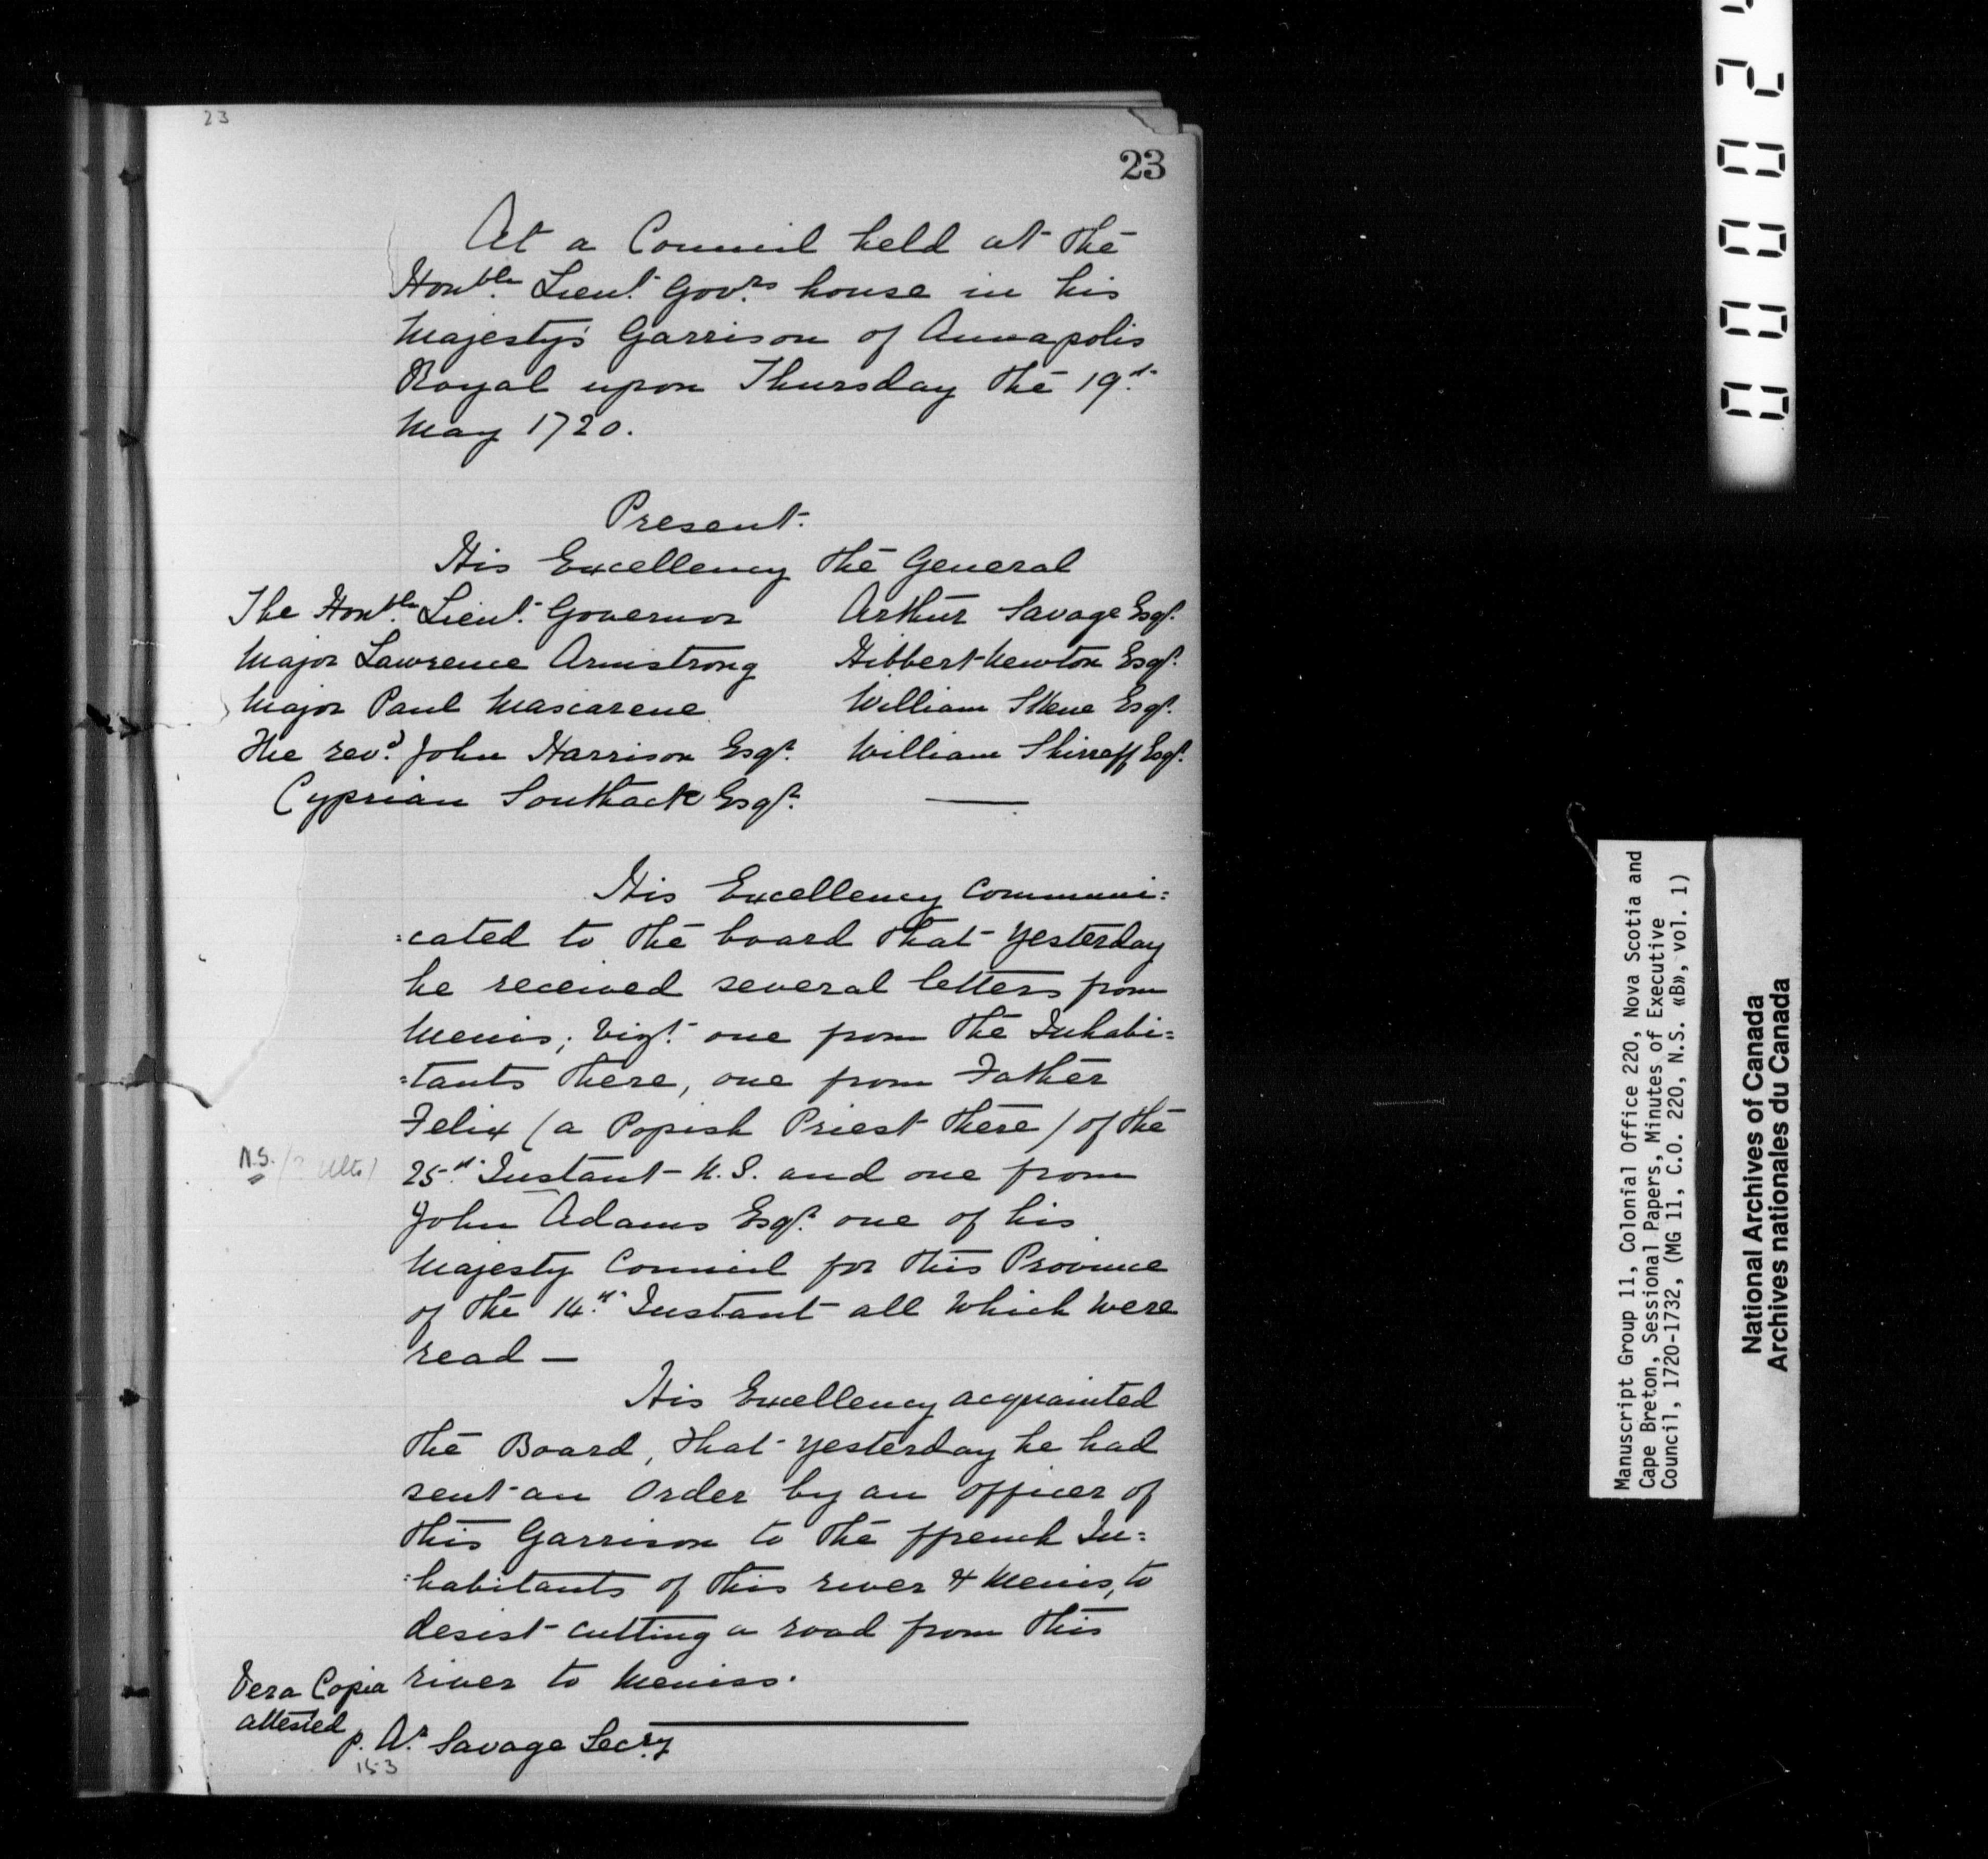 23
23
At a Council held at the
Honble Lieut. Govrs house in his
Majesty's Garrison of Annapolis
Royal upon Thursday the 19th
May 1720.
Present.
His Excellency the General
The Honble Lieut. Governor
Major Lawrence Armstrong
Major Paul Mascarene
The revd John Harrison Esqr.
Cyprian Southack Esqr.
Arthur Savage Esqr.
Hibbert Newton Esqr.
William Skene Esqr.
William Shirreff Esqr.
His Excellency Communi=
=cated to the board that yesterday
he received several letters from
Menis; Vizt. one from the Inhabi=
=tants there, one from Father
Felix (a Popish Priest there) of the
N.S.
25th Instant N.S. and one from
John Adams Esqr. one of his
Majesty Council for this Province
of the 14th Instant all which were
read —
His Excellency acquainted
the Board, that yesterday he had
sent an Order by an officer of
this Garrison to the ffrench In=
=habitants of this river & Menis, to
desist cutting a road from this
river to Meniss.
Vera Copia
attested
p. Ar. Savage Secry
153
Manuscript Group 11, Colonial Office 220, Nova Scotia and
Cape Breton, Sessional Papers, Minutes of Executive
Council, 1720-1732, (MG 11, C.O. 220, N.S. «B», vol. 1)
National Archives of Canada
Archives nationales du Canada